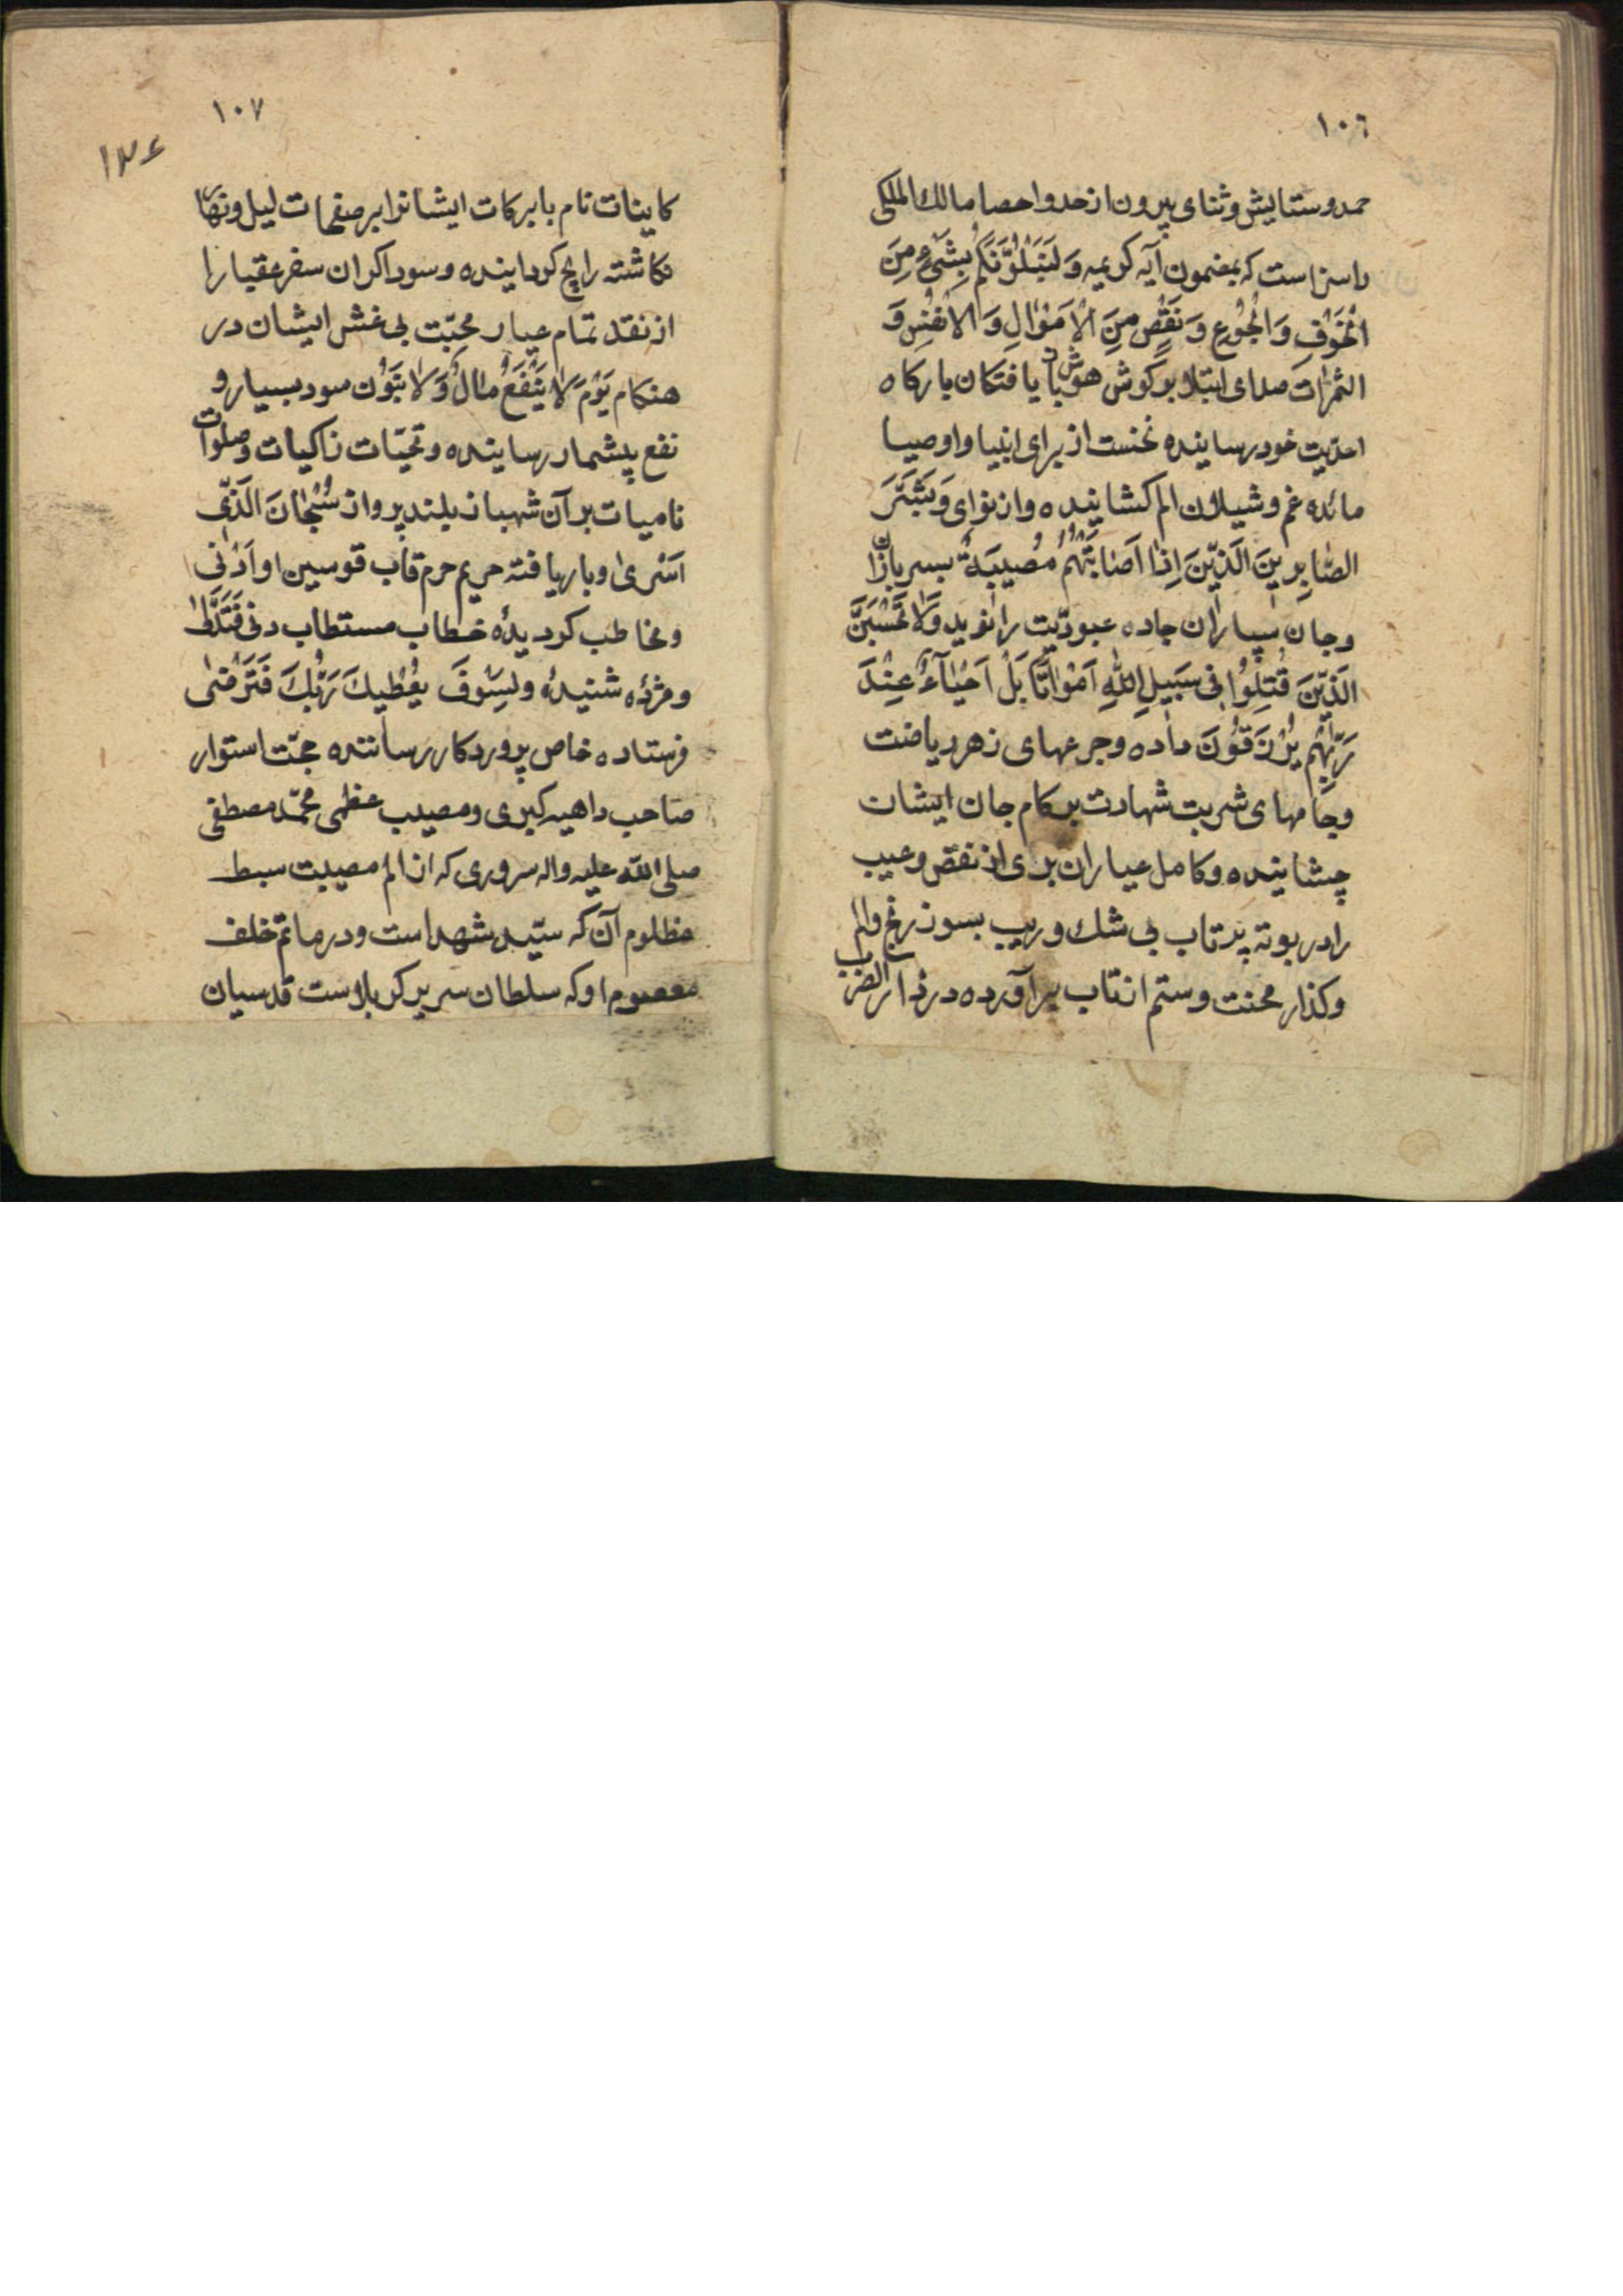 ١٠٦
حمد و ستایش و ثنای بیرون از حد و احصا مالك الملکی
را سزا است که بمضمون آیه کریمه وَلَنَبْلُوَنَّکُمْ بِشَیْءٍ مِنَ
الْخَوْفِ وَ الْجُوْعِ وَ نَقْصٍ مِنَ الْاَمْوٰالِ وَ الْاَنْفُسِ وَ
الثمرٰات صلای ابتلا بر گوش هوش باریافتکان بارکاه
احدیت خود رسانیده نخست از برای انبیا و اوصیا
مائده غم و شیلان الم کشانیده و از نوای وَبَشِّرَ
الصّٰابِرِینَ الَّذِیْنَ اِذٰا اَصٰابَتْهُمْ مُصٖیبَةٌ بسربازان
وجان سپاران جاده عبودیّت را نوید وَلٰا تَحْسَبَنَّ
الَّذِیْنَ قُتِلُوْا فِی سَبِیلِ اللّٰهِ اَمْوٰاتًا بَلْ اَحْیٰآءٌ عِنْدَ
رَبِّهِمْ یُرْزَقُوْنَ داده و جرعهای زهر ریاضت
وجامهای شربت شهادت بر کام جان ایشان
چشانیده و کامل عیاران بری از نقص و عیب
را در بوته پرتاب بی شك و ریب بسوز رنج والم
وکداز محنت و ستم از تاب برآورده در دار الضرب
١٠٧
١٣٤
کاینات نام با برکات ایشانرا بر صفحات لیل ونهار
نکاشته رایج کردانیده و سوداکران سفر عقبا را
از نقد تمام عیار محبّت بی غش ایشان در
هنکام یَوْمَ لٰا یَنْفَعُ مٰالٌ وَلٰا بَنُوْن سود بسیار و
نفع بیشمار رسانیده و تحیّات زاکیات وصلوات
نامیات بر آن شهباز بلند پرواز سُبْحٰانَ الَّذِی
اَسْریٰ و باریافته حریم حرم قاب قوسین او اَدْنٰی
ومخاطب کردیدهٔ خطاب مستطاب دنی فَتَدَلّٰی
و مژده شنیدهٔ ولَسَوْفَ یُعْطیكَ رَبُّكَ فَتَرْضٰی
فرستاده خاص پروردکار رسانندہ حجّت استوار
صاحب داهیه کبری و مصیبت عظمی محمّد مصطفی
صلی الله علیه واله سروری که از الم مصیبت سبط
مظلوم آن که سیّد شهدا است و در ماتم خلف
معصوم او که سلطان سریر کربلاست قدسیان